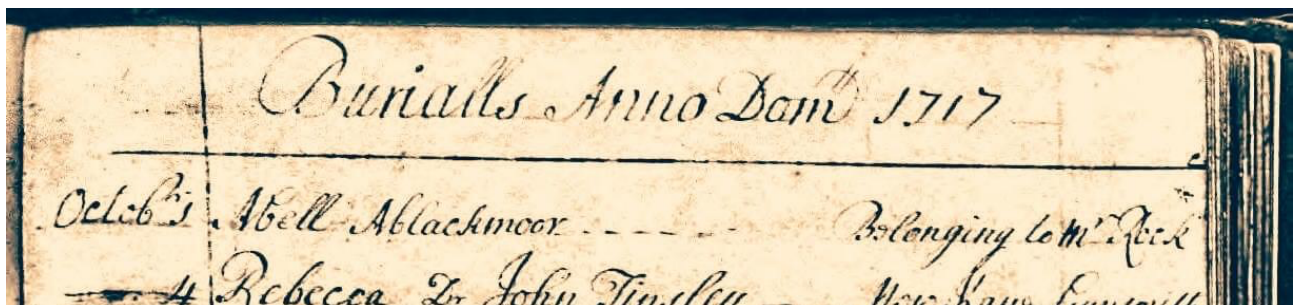 Burialls Anno Dom 1717
Octobr 1 Abell Ablackmoor Belonging to Mr Rock
4 Rebecca Dr John Tinsley New